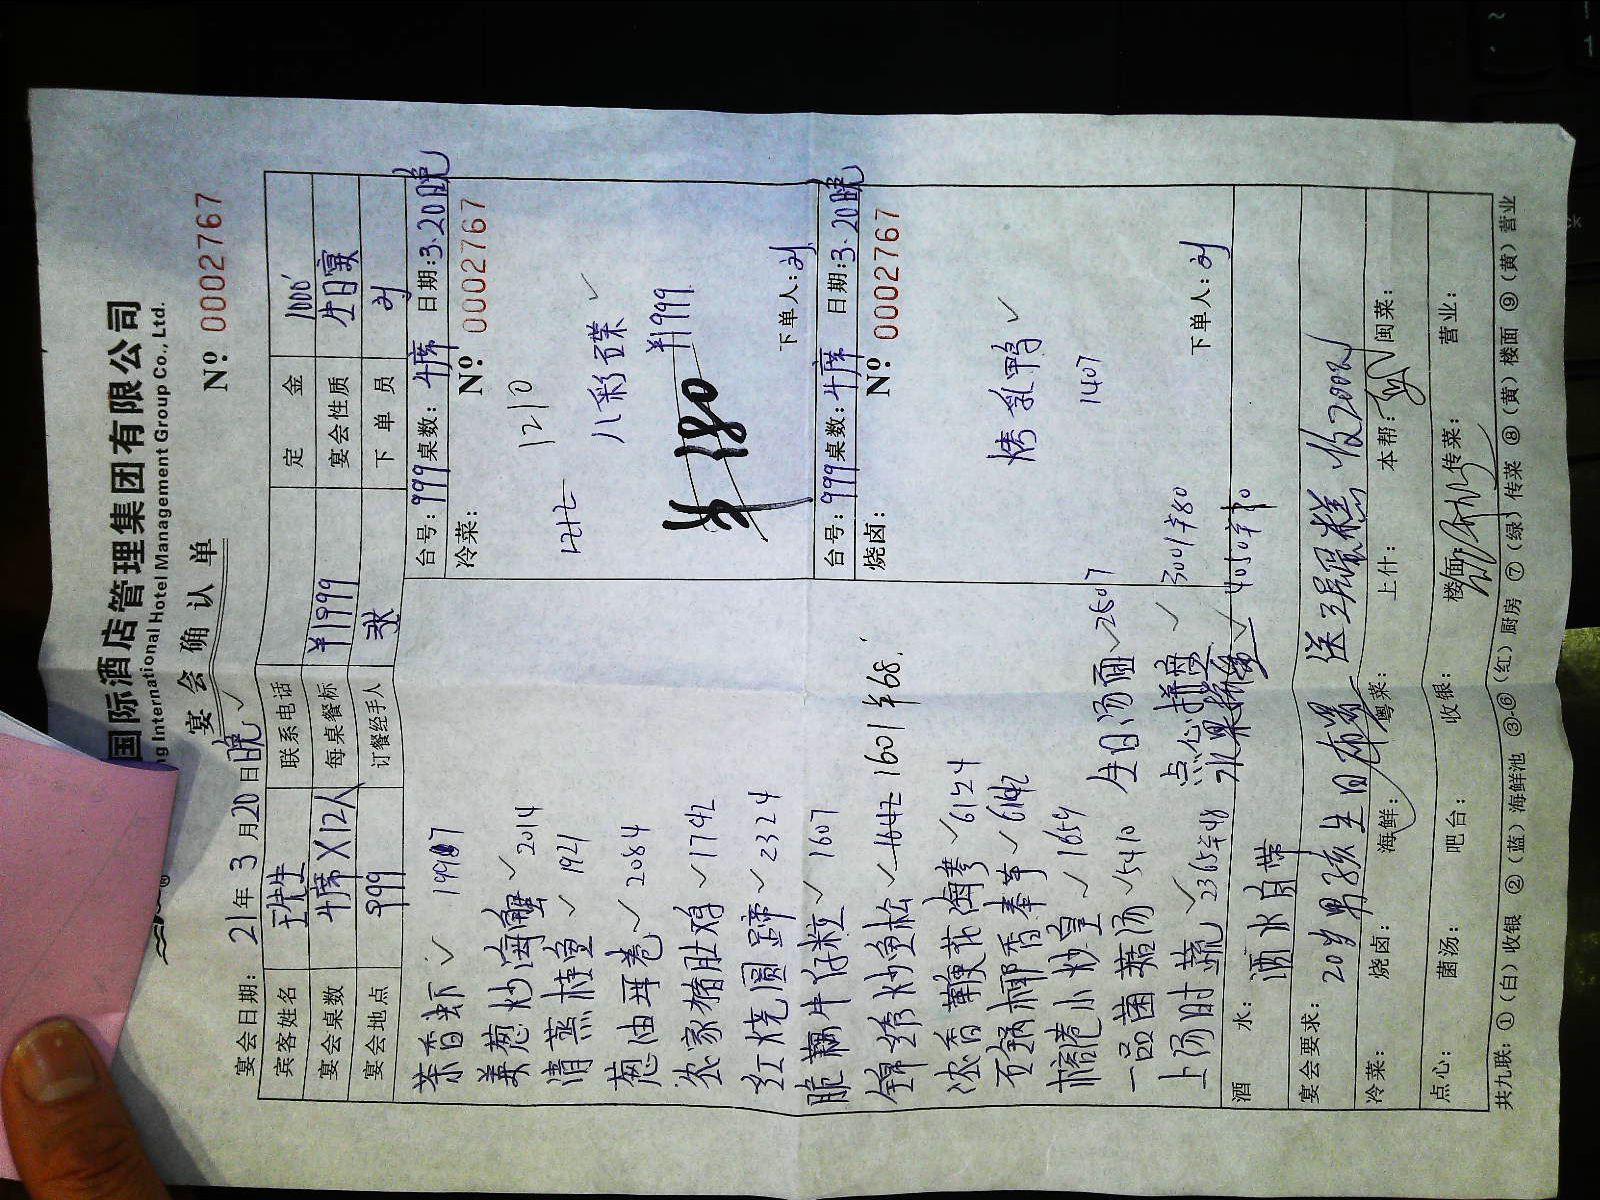 国际酒店管理集团有限公司
ng International Hotel Management Group Co., Ltd.
宴会确认单
宴会日期: 21年3月20日晚 № 0002767
宾客姓名 王先生 联系电话 定金 1000
宴会桌数 4席×12人 每桌餐标 ¥1999 宴会性质 生日宴
宴会地点 999 订餐经手人 张 下单员 刘
茶香虾 ✓
姜葱炒海蟹 ✓ 2014
清蒸桂鱼 ✓ 1921
葱油耳卷 ✓ 2084
农家猪肚鸡 ✓ 1742
红烧圆蹄 ✓ 2324
脆藕牛仔粒 ✓ 1607
锦绣炒鱼松 ✓ 1642 1601 半68
浓香鞭花海参 ✓ 6124
石锅椰香奉芋 ✓
榕港小炒皇 ✓ 1659
一品菌菇汤 ✓ 5410 生日汤面 ✓ 2607
上汤时蔬 ✓ 2365半48 点心拼盘 ✓ 3001半80
水果拼盘 ✓ 4050半
台号: 999 桌数: 4席 日期: 3.20晚
冷菜: № 0002767
1210
八彩碟 ✓
¥1999
下单人: 刘
台号: 999 桌数: 4席 日期: 3.20晚
烧卤: № 0002767
烤乳鸭 ✓
1407
下单人: 刘
酒水: 酒水自带
宴会要求: 20岁男孩生日布置 送三层蛋糕 收200元
冷菜: 烧卤: 海鲜: 粤菜: 上什: 本帮: 闽菜:
点心: 菌汤: 吧台: 收银: 楼面: 传菜: 营业:
共九联: ①(白)收银 ②(蓝)海鲜池 ③-⑥(红)厨房 ⑦(绿)传菜 ⑧(黄)楼面 ⑨(黄)营业